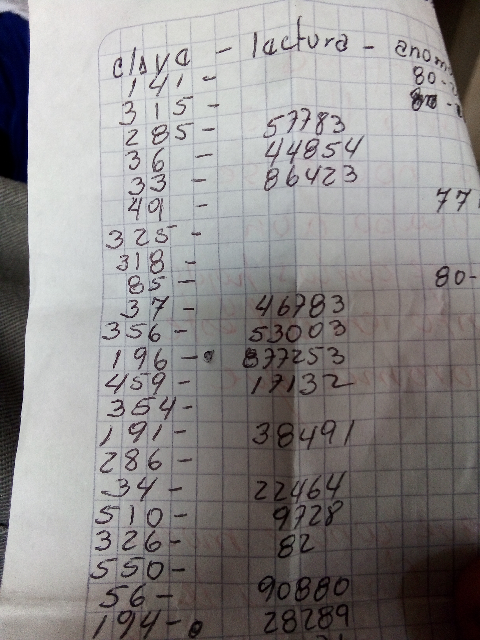 clave - lactura - anom
141 - 80-
315 -
285 - 57783
36 - 44854
33 - 86423
49 - 77
325 -
318 -
85 - 80-
37 - 46783
356 - 53003
196 - 877253
459 - 17132
354 -
191 - 38491
286 -
34 - 22464
510 - 9728
326 - 82
550 -
56 - 90880
194 - 28289